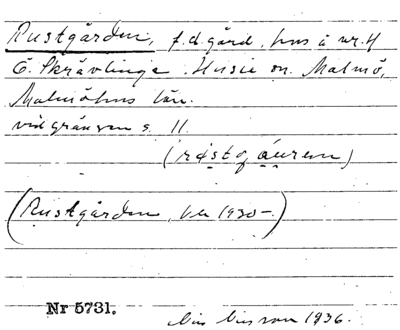 Rustgården, f.d. gård, hus å nr. 4
Ö. Skrävlinge, Husie sn. Malmö,
Malmöhus län.
vid gränsen s. 11.
(Rustgården, 1930-)
Nr 5731.
1936.